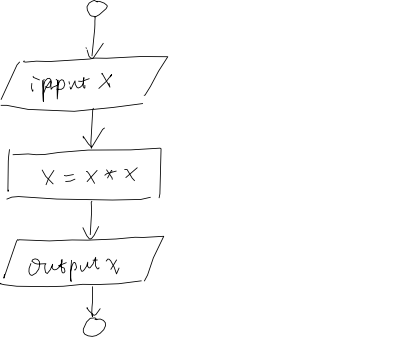 ipput X
X = X * X
output X